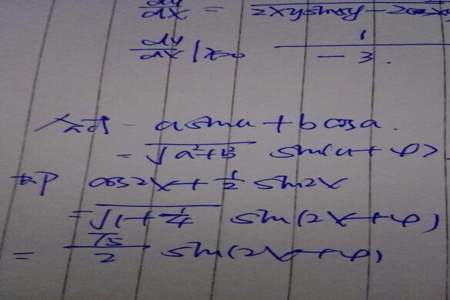 dy/dx =
2xy sin xy - 2cos
dy/dx | x=0 1/-3.
公式 a sin a + b cos a.
= √a²+b² sin(a+φ)
故 cos2x + 1/2 sin2x
= √1+1/4 sin(2x+φ)
= √5/2 sin(2x+φ)